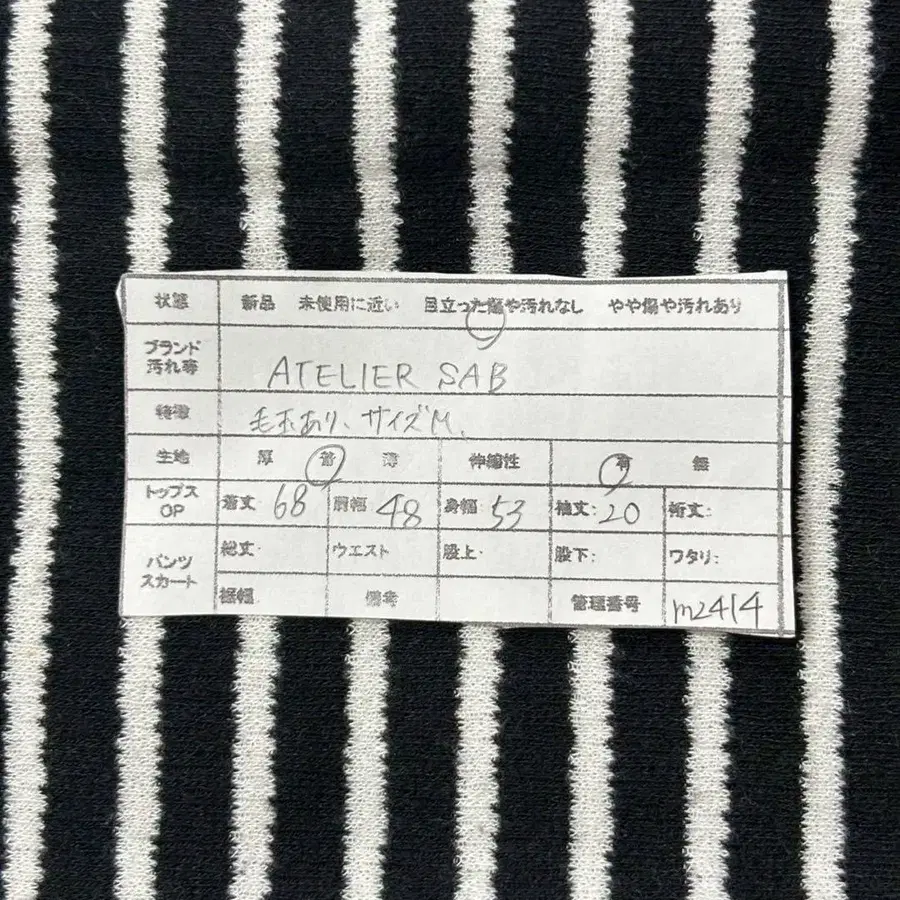 状態 新品 未使用に近い 目立った傷や汚れなし やや傷や汚れあり
ブランド
汚れ等 ATELIER SAB
特徴 毛玉あり、サイズM、
生地 厚 普 薄 伸縮性 有 無
トップス
OP 着丈: 68 肩幅: 48 身幅: 53 袖丈: 20 裄丈:
パンツ
スカート 総丈: ウエスト 股上: 股下: ワタリ:
裾幅 備考 管理番号 m2414